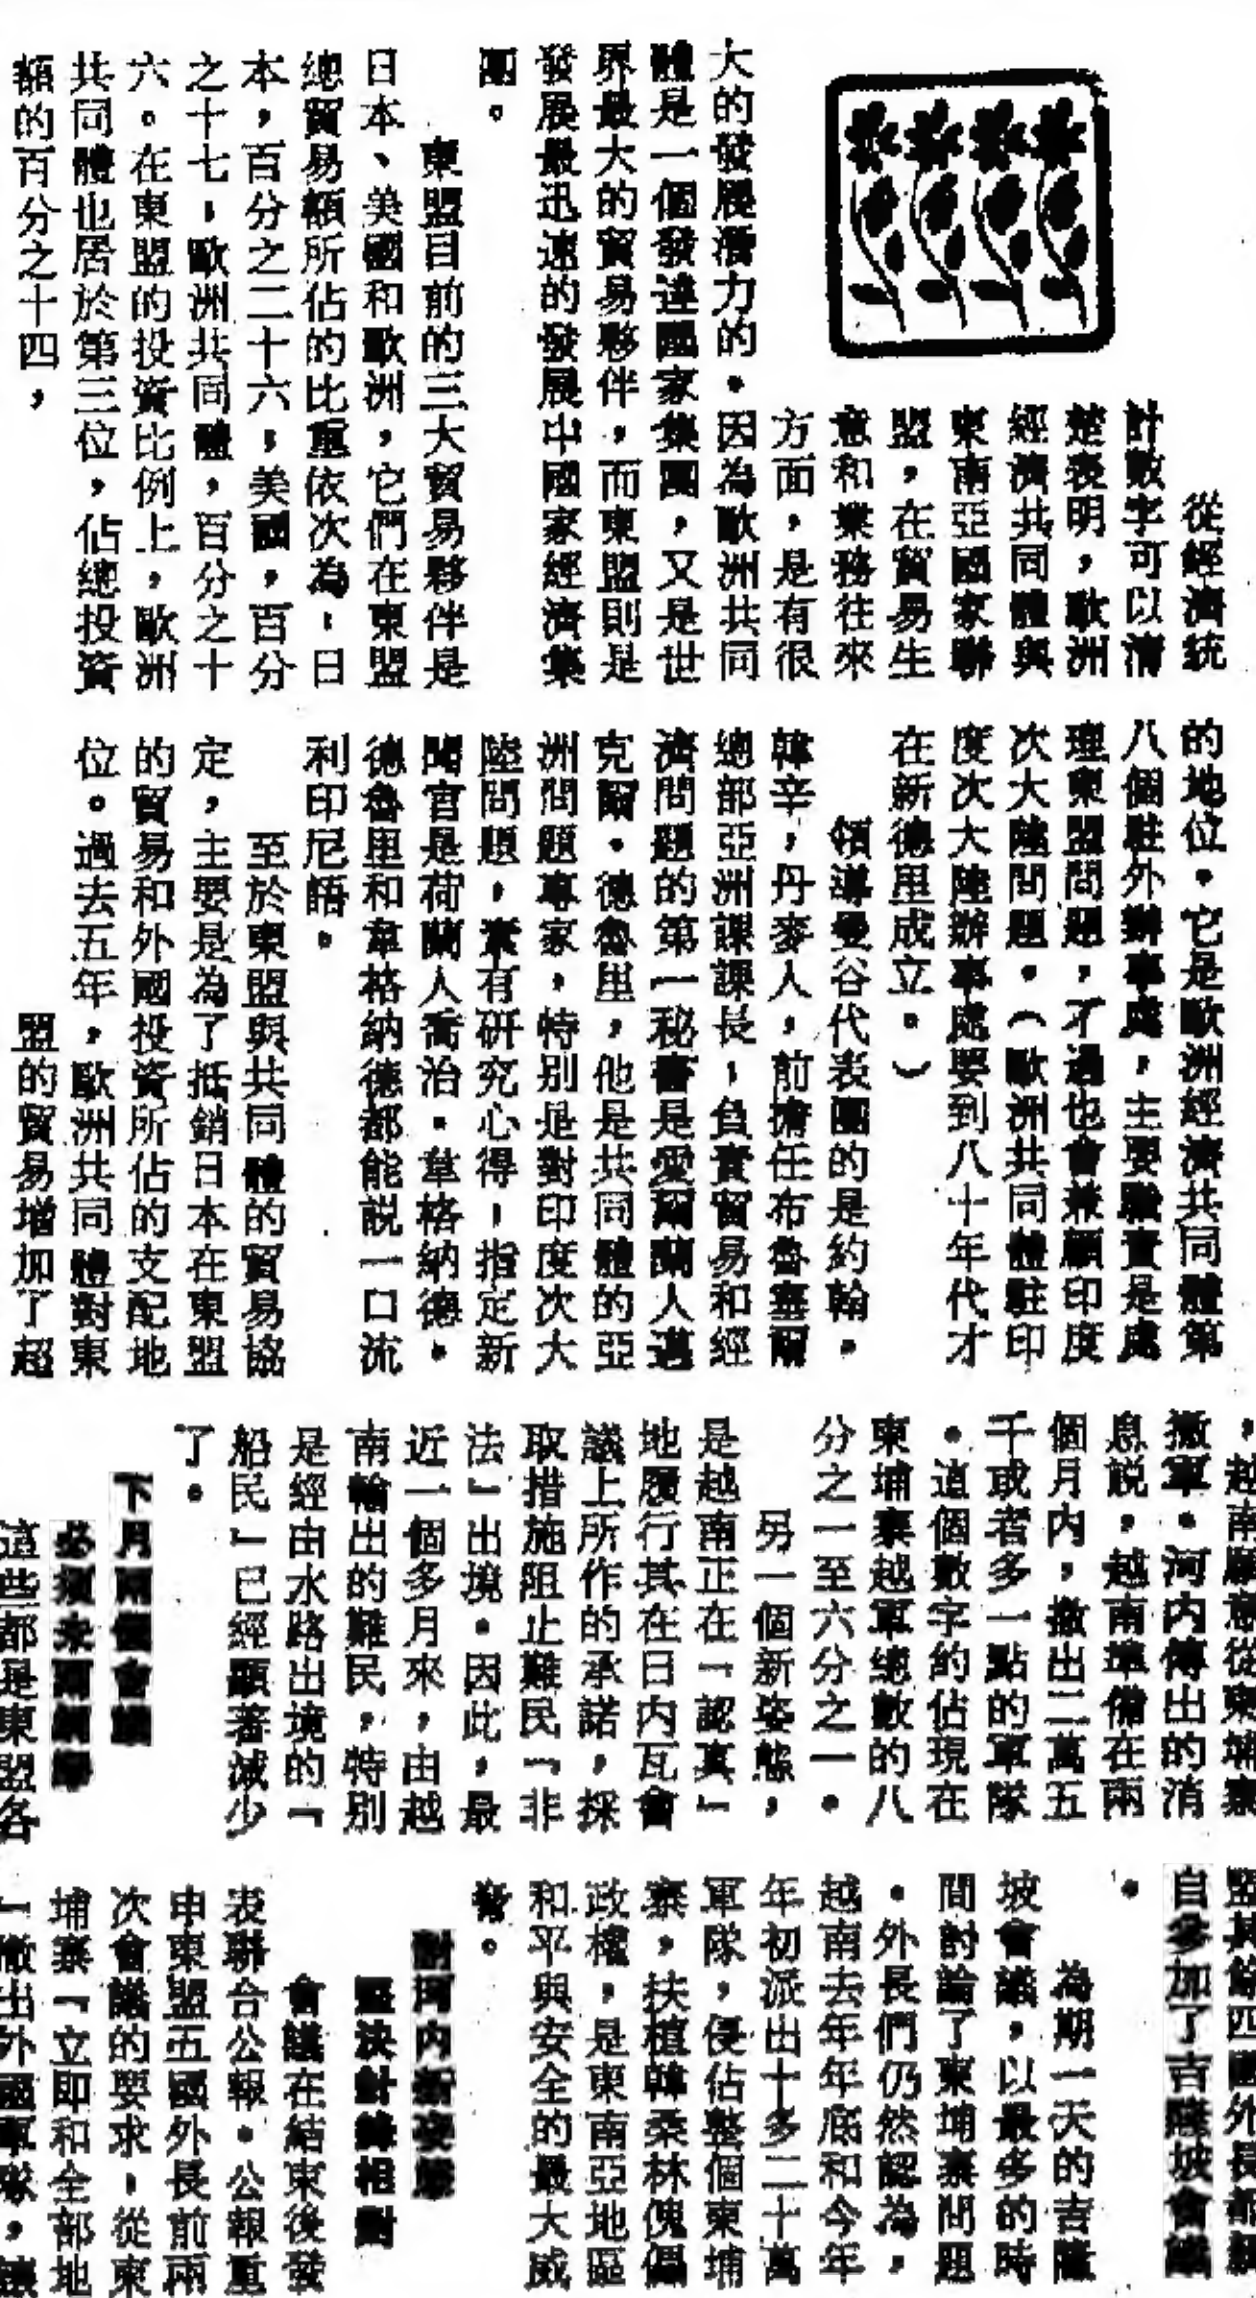 從經濟統
計數字可以清
楚表明，歐洲
經濟共同體與
東南亞國家聯
盟，在貿易生
意和業務往來
方面，是有很
大的發展潛力的。因為歐洲共同
體是一個發達國家集團，又是世
界最大的貿易夥伴，而東盟則是
發展最迅速的發展中國家經濟集
團。
東盟目前的三大貿易夥伴是
日本、美國和歐洲，它們在東盟
總貿易額所佔的比重依次為：日
本，百分之二十六；美國，百分
之十七；歐洲共同體，百分之十
六。在東盟的投資比例上，歐洲
共同體也居於第三位，佔總投資
額的百分之十四，
的地位。它是歐洲經濟共同體第
八個駐外辦事處，主要職責是處
理東盟問題，才過也會兼顧印度
次大陸問題。（歐洲共同體駐印
度次大陸辦事處要到八十年代才
在新德里成立。）
領導曼谷代表團的是約翰。
韓辛，丹麥人，前擔任布魯塞爾
總部亞洲課課長，負責貿易和經
濟問題的第一秘書是愛爾蘭人邁
克爾。德魯里，他是共同體的亞
洲問題專家，特別是對印度次大
陸問題，素有研究心得，指定新
聞官是荷蘭人喬治。韋格納德。
德魯里和韋格納德都能説一口流
利印尼語。
至於東盟與共同體的貿易協
定，主要是為了抵銷日本在東盟
的貿易和外國投資所佔的支配地
位。過去五年，歐洲共同體對東
盟的貿易增加了超
，越南願意從東埔寨
撤軍。河內傳出的消
息説，越南準備在兩
個月內，撤出二萬五
千或者多一點的軍隊
。這個數字約佔現在
東埔寨越軍總數的八
分之一至六分之一。
另一個新姿態，
是越南正在「認真」
地履行其在日內瓦會
議上所作的承諾，採
取措施阻止難民「非
法」出境。因此，最
近一個多月來，由越
南輸出的難民，特別
是經由水路出境的「
船民」已經顯著減少
了。
下月兩個會議
必須未雨綢繆
這些都是東盟各
盟其餘四國外長都親
自參加了吉隆坡會議
。
為期一天的吉隆
坡會議，以最多的時
間討論了東埔寨問題
。外長們仍然認為，
越南去年年底和今年
年初派出十多二十萬
軍隊，侵佔整個東埔
寨，扶植韓桑林傀儡
政權，是東南亞地區
和平與安全的最大威
脅。
對河內新姿態
堅決針鋒相對
會議在結束後發
表聯合公報。公報重
申東盟五國外長前兩
次會議的要求，從東
埔寨「立即和全部地
」撤出外國軍隊，讓